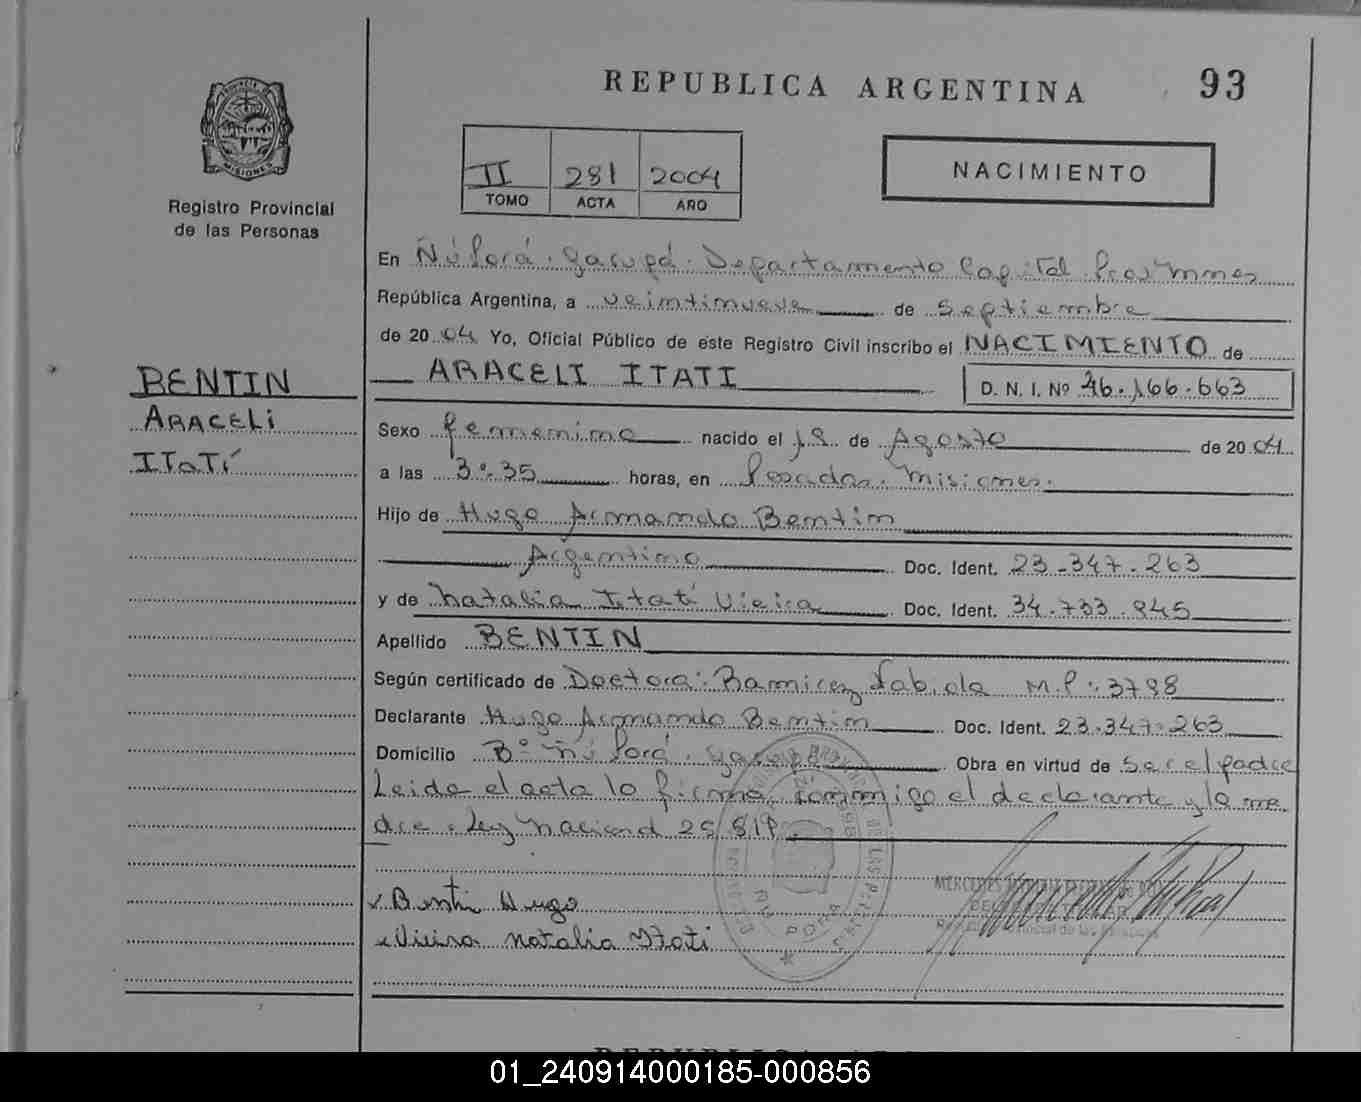 REPUBLICA ARGENTINA 93
PROVINCIA DE MISIONES
Registro Provincial
de las Personas
II 281 2004
TOMO ACTA AÑO
NACIMIENTO
BENTIN
ARACELI
ITATÍ
En Ñú Porá. Garupá. Departamento Capital Prov. Mnes
República Argentina, a veintinueve de Septiembre
de 2004 Yo, Oficial Público de este Registro Civil inscribo el NACIMIENTO de
ARACELI ITATI D. N. I. Nº 46.166.663
Sexo femenino nacido el de Agosto de 2004
a las 3º:35 horas, en Posadas. Misiones.
Hijo de Hugo Armando Bentin
Argentino Doc. Ident. 23.347.263
y de Natalia Itatí Vieira Doc. Ident. 34.733.845
Apellido BENTIN
Según certificado de Doctora: Ramirez Fabiola M.P: 3798
Declarante Hugo Armando Bentin Doc. Ident. 23.347.263
Domicilio Bº Ñú Porá. Garupá Obra en virtud de Ser el padre
Leida el acta la firma conmigo el declarante y la ma-
dre. Ley Nacional 25.819.
x Bentin Hugo
x Vieira Natalia Itati
01_240914000185-000856